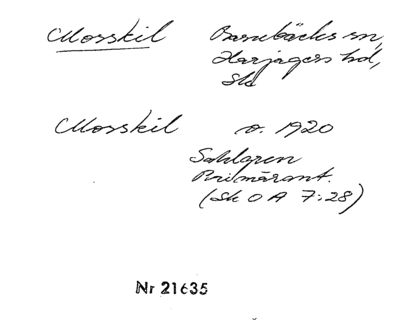 Mosskil Barsebäcks sn,
Harjagers hd,
Sk
Mosskil o. 1920
Sahlgren
Primärant.
(Sk O A 7:28)
Nr 21635